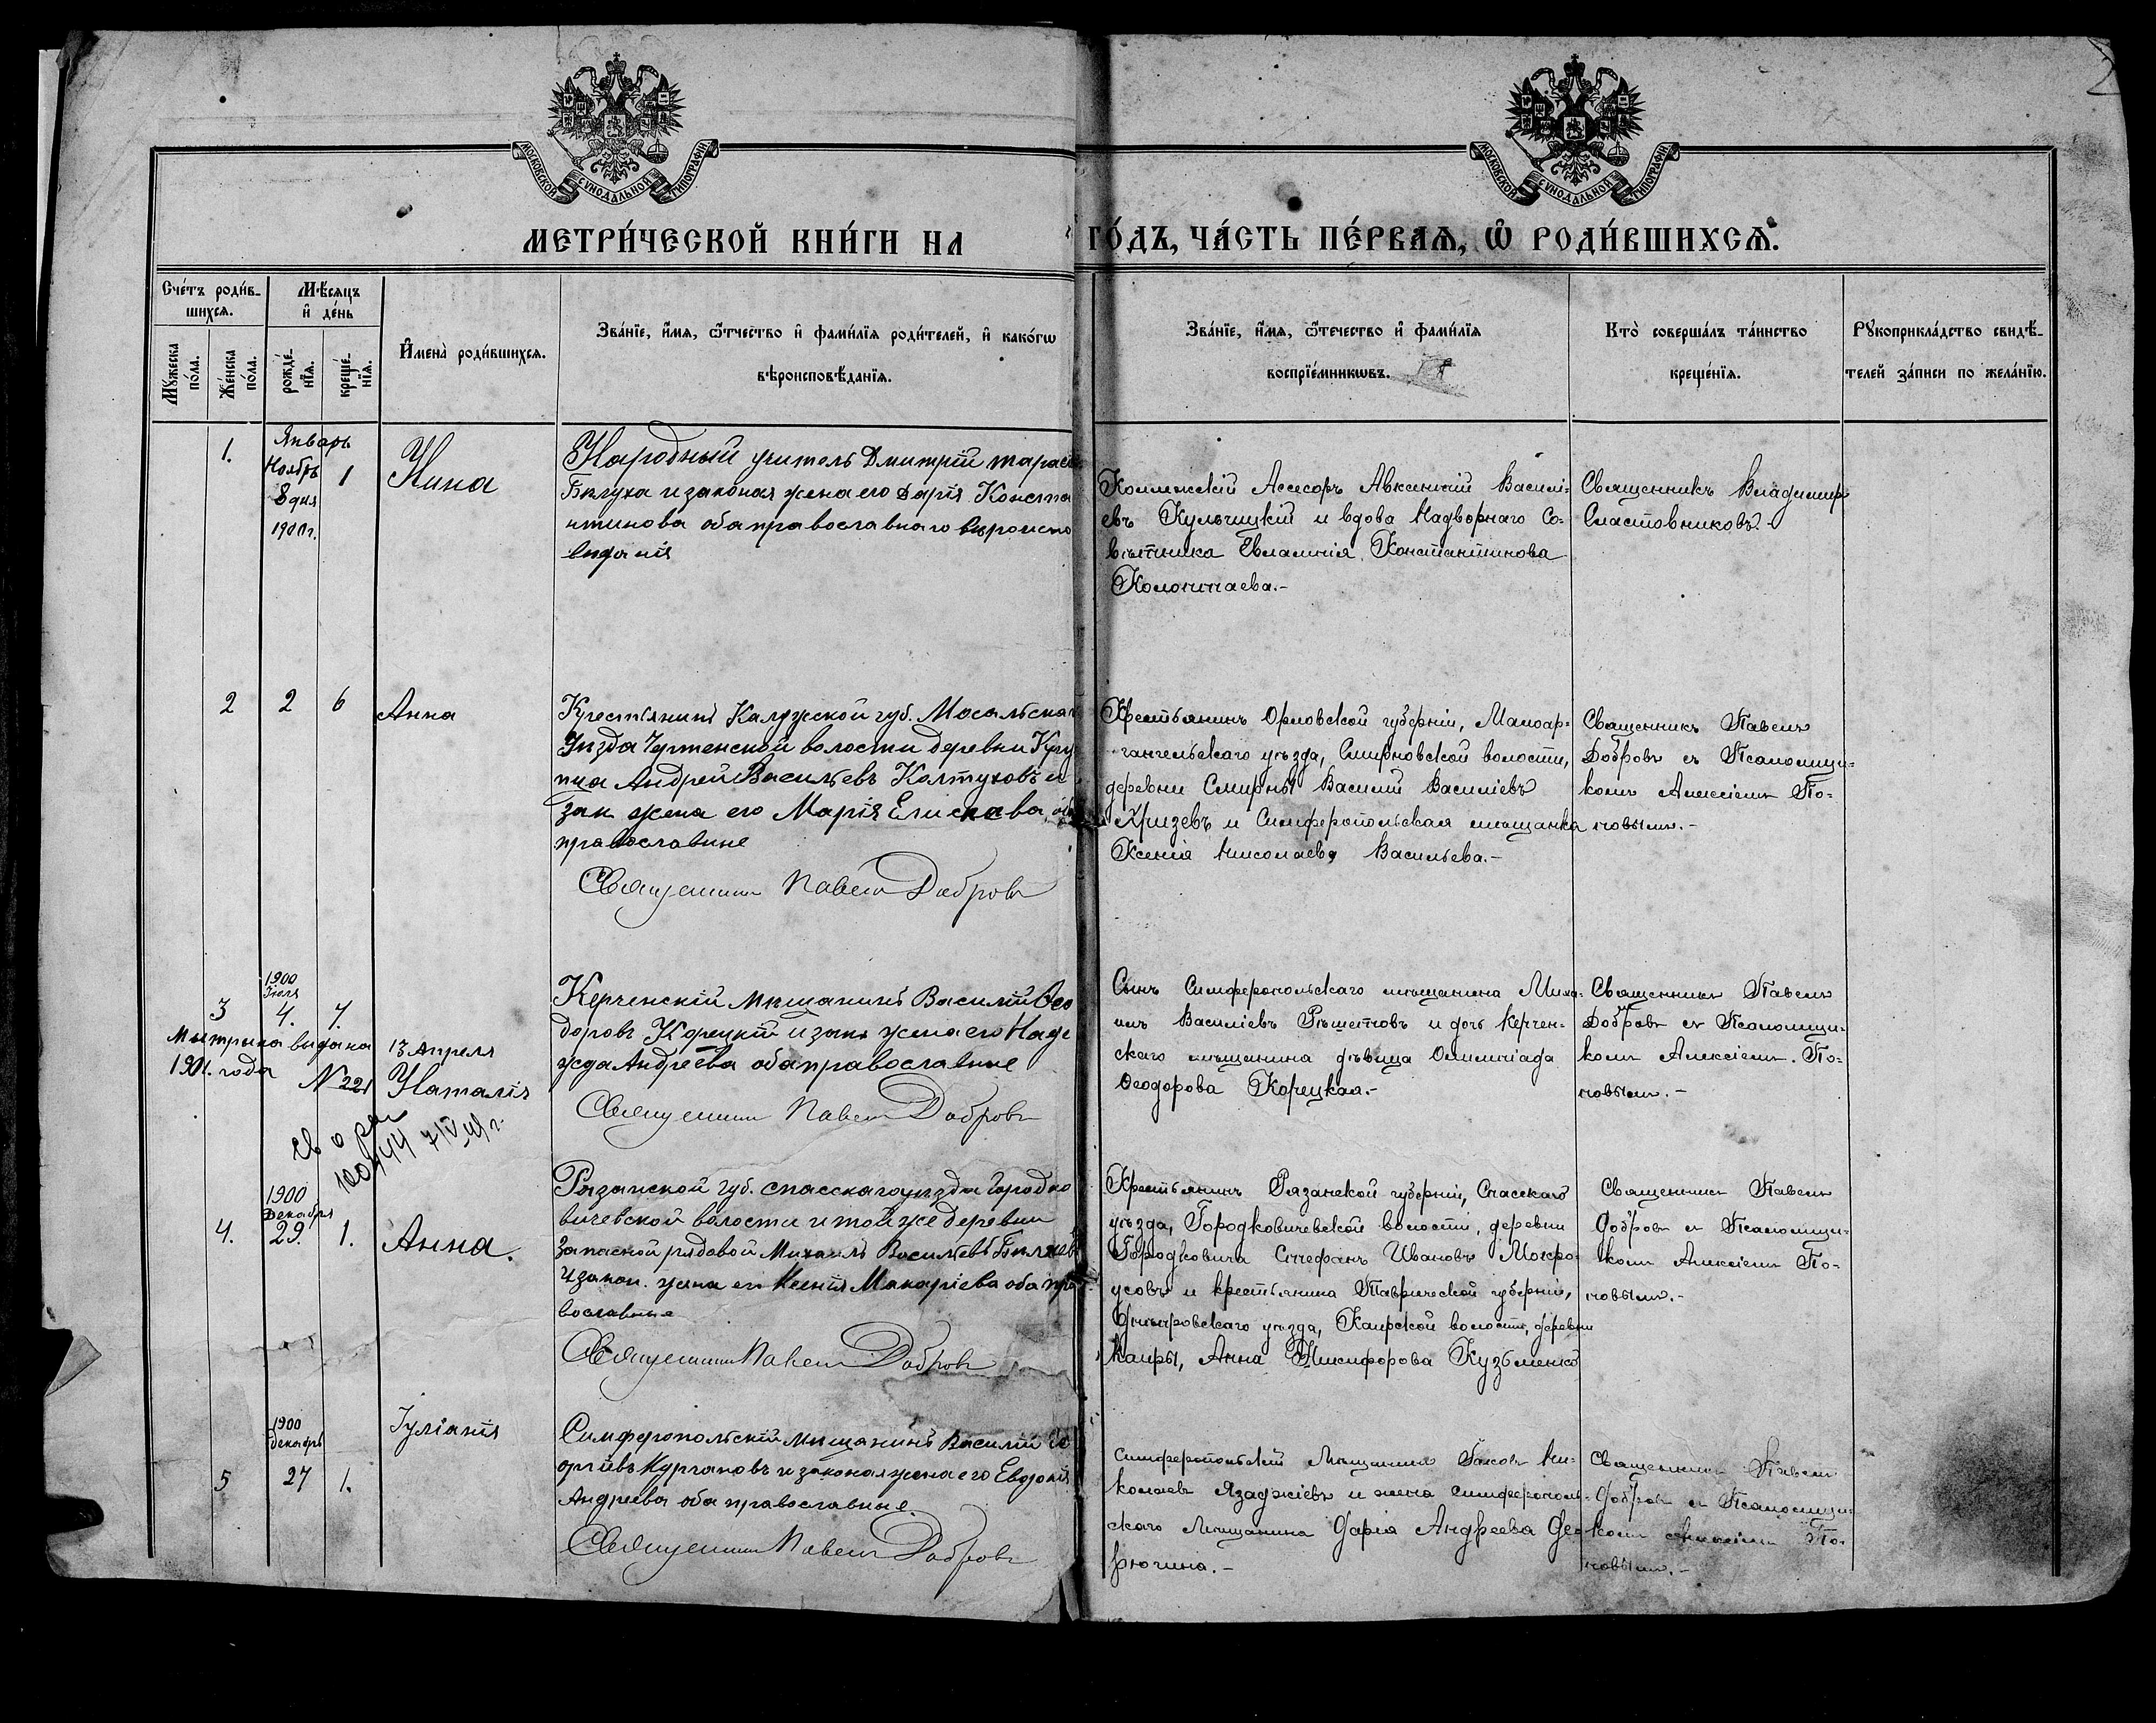 МОСКОВСКОЙ СѴНОДАЛЬНОЙ ТИПОГРАФІИ
МОСКОВСКОЙ СѴНОДАЛЬНОЙ ТИПОГРАФІИ
МЕТРИ́ЧЕСКОЙ КНИ́ГИ НА
ГО́ДЪ, ЧА́СТЬ ПЕ́РВАЯ, Ѡ РОДИ́ВШИХСЯ.
Сче́тъ роди́в-
шихся.
Мѣ́сяцъ
и҆ де́нь
Мꙋ́жеска
по́ла.
Же́нска
по́ла.
рожде́-
нїя.
креще́-
нїя.
И҆мена̀ роди́вшихся.
Зва́нїе, и҆́мя, ѻ҆́тчество и҆ фами́лїя роди́телей, и҆ како́гѡ
вѣроисповѣ́данїя.
Зва́нїе, и҆́мя, ѻ҆те́чество и҆ фами́лїя
воспрїе́мникѡвъ.
Кто̀ соверша́лъ та́инство
креще́нїя.
Рꙋкоприкла́дство свидѣ́-
телей за́писи по жела́нїю.
Январь
1.
Ноябрь
8 дня
1900 г.
1
Нина
Народный учитель Дмитрій Тарас
Бѣлуха и законая жена его Дарія Конста
нтинова оба православнаго вѣроиспо
вѣданія
Коллежскій Ассесоръ Авксентій Василі-
евъ Кульчицкій и вдова Надворнаго Со-
вѣтника Евлампія Константинова
Колоптаева.-
Священникъ Владимир
Сластовниковъ.-
2 2 6
Анна
Крестьянинъ Калужской губ. Мосальскаго
Уѣзда Чертенской волости деревни
Андрей Васильевъ Колтуховъ и
зак жена его Марія Елисеева об
православные
Священникъ Павелъ Добровъ
Крестьянинъ Орловской губерніи, Малоар-
гангельскаго уѣзда, Смирновской волости,
деревни Смирны Василій Василіевъ
Хризевъ и Симферопольская мѣщанка
Ксенія Николаева Васильева.-
Священникъ Павелъ
Добровъ съ Псаломщи-
комъ Алексіемъ По-
повымъ.-
1900
Іюля
3 4. 7.
Метрика выдана 13 Апреля
1901. года № 221
Наталія
Керченскій Мѣщанинъ Василій Ѳео
доровъ Корецкій и зак. жена его Наде
жда Андреева оба православные
Священникъ Павелъ Добровъ
Сынъ Симферопольскаго мѣщанина Миха-
илъ Василіевъ Рѣшетовъ и дочь Керчен-
скаго мѣщанина дѣвица Олимпіада
Ѳеодорова Корецкая.-
Священникъ Павелъ
Добровъ съ Псаломщи-
комъ Алексіемъ По-
повымъ.-
1900
Декабря
4. 29. 1.
Анна.
Рязанской губ. Спасскаго уѣзда Городко
вичевской волости и той же деревни
запасной рядовой Михаилъ Васильевъ Бѣляев
и закон. жена его Ксенія Макаріева оба пра
вославные
Священникъ Павелъ Добровъ
Крестьянинъ Рязанской губерніи, Спасскаго
уѣзда, Городковичевской волости, деревни
Городковича Стефанъ Ивановъ Мокро-
усовъ и крестьянина Таврической губерніи,
Днѣпровскаго уѣзда, Каирской волости, деревни
Каиры, Анна Никифорова Кузьменко
Священникъ Павелъ
Добровъ съ Псаломщи-
комъ Алексіемъ По-
повымъ.-
1900
декабрь
5 27 1.
Іуліанія
Симферопольскій мѣщанинъ Василій Ге
оргіевъ Кургановъ и законая жена его Евдокія
Андреева оба православные
Священникъ Павелъ Добровъ
Симферопольскій Мѣщанинъ Яковъ Ни-
колаевъ Язаджіевъ и жена симферополь-
скаго Мѣщанина Дарія Андреева Де-
рюгина.-
Священникъ Павелъ
Добровъ съ Псаломщи-
комъ Алексіемъ По-
повымъ.-